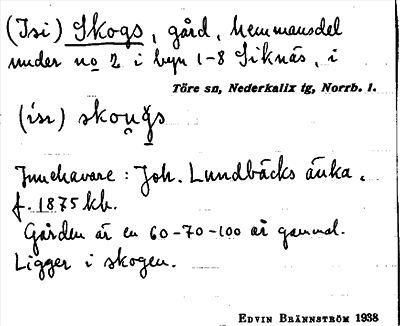 (Isi) Skogs, gård, hemmansdel
under no 2 i byn 1-8 Siknäs, i
Töre sn, Nederkalix tg, Norrb. l.
Innehavare: Joh. Lundbäcks änka,
f. 1875 kb.
Gården är en 60-70-100 år gammal.
Ligger i skogen.
EDVIN BRÄNNSTRÖM 1938